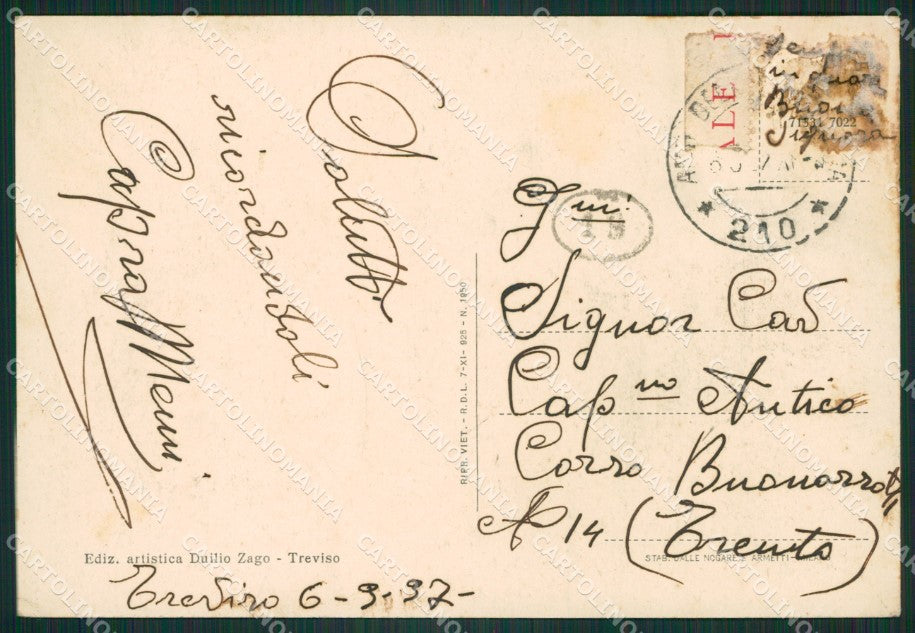 Saluti
ricordandoli
Ediz. artistica Duilio Zago - Treviso
Treviso 6-9-37-
RIPR. VIET. - R.D.L. 7-XI-925 - N. 1950
ALE
71531 7022
Signora
210
19
Gmi
Signor Cav
Capno Antico
Corso Buonarroti
No 14 (Trento)
STAB. DALLE NOGARE E ARMETTI - MILANO
CARTOLINOMANIA